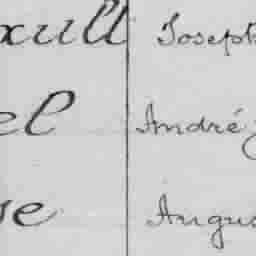 xull Joseph
el André
se Angus